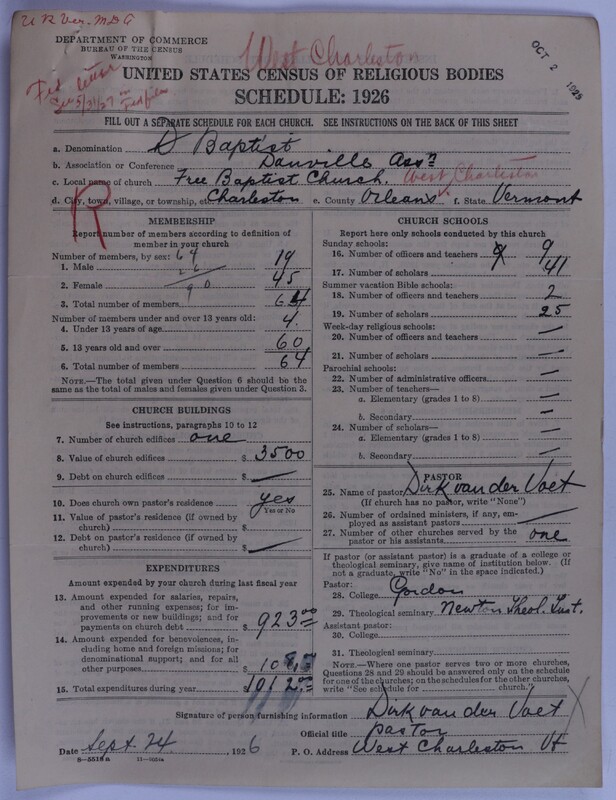 U R Ver. M D G
DEPARTMENT OF COMMERCE
BUREAU OF THE CENSUS
WASHINGTON
West Charleston
OCT 2 1926
UNITED STATES CENSUS OF RELIGIOUS BODIES
SCHEDULE: 1926
FILL OUT A SEPARATE SCHEDULE FOR EACH CHURCH. SEE INSTRUCTIONS ON THE BACK OF THIS SHEET
a. Denomination D Baptist
b. Association or Conference Danville Assn
c. Local name of church Free Baptist Church. West Charleston
d. City, town, village, or township, etc. Charleston e. County Orleans f. State Vermont
R
MEMBERSHIP
Report number of members according to definition of member in your church
Number of members, by sex: 64
1. Male 19
26
2. Female 45
90
3. Total number of members 64
Number of members under and over 13 years old:
4. Under 13 years of age 4
5. 13 years old and over 60
6. Total number of members 64
NOTE.—The total given under Question 6 should be the same as the total of males and females given under Question 3.
CHURCH BUILDINGS
See instructions, paragraphs 10 to 12
7. Number of church edifices one
8. Value of church edifices $ 3500
9. Debt on church edifices $ —
10. Does church own pastor's residence yes
Yes or No
11. Value of pastor's residence (if owned by church) $
12. Debt on pastor's residence (if owned by church) $ —
EXPENDITURES
Amount expended by your church during last fiscal year
13. Amount expended for salaries, repairs, and other running expenses; for improvements or new buildings; and for payments on church debt $ 923.00
14. Amount expended for benevolences, including home and foreign missions; for denominational support; and for all other purposes $
15. Total expenditures during year $ 1012.00
CHURCH SCHOOLS
Report here only schools conducted by this church
Sunday schools:
16. Number of officers and teachers 9
17. Number of scholars 41
Summer vacation Bible schools:
18. Number of officers and teachers 2
19. Number of scholars 25
Week-day religious schools:
20. Number of officers and teachers —
21. Number of scholars —
Parochial schools:
22. Number of administrative officers —
23. Number of teachers—
a. Elementary (grades 1 to 8) —
b. Secondary —
24. Number of scholars—
a. Elementary (grades 1 to 8) —
b. Secondary —
PASTOR
25. Name of pastor Dirk van der Voet
(If church has no pastor, write "None")
26. Number of ordained ministers, if any, employed as assistant pastors —
27. Number of other churches served by the pastor or his assistants one
If pastor (or assistant pastor) is a graduate of a college or theological seminary, give name of institution below. (If not a graduate, write "No" in the space indicated.)
Pastor:
28. College Gordon
29. Theological seminary Newton Theol. Inst.
Assistant pastor:
30. College
31. Theological seminary
NOTE.—Where one pastor serves two or more churches, Questions 28 and 29 should be answered only on the schedule for one of the churches; on the schedules for the other churches, write "See schedule for ........ church."
Signature of person furnishing information Dirk van der Voet
Official title pastor
Date Sept. 24, 1926 P. O. Address West Charleston Vt